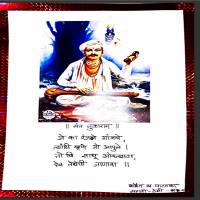 ॥ संत तुकाराम ॥
जे का रंजले गांजले,
त्यांसि म्हणे जो आपुले ।
तो चि साधू ओळखावा,
देव तेथेचि जाणावा ॥